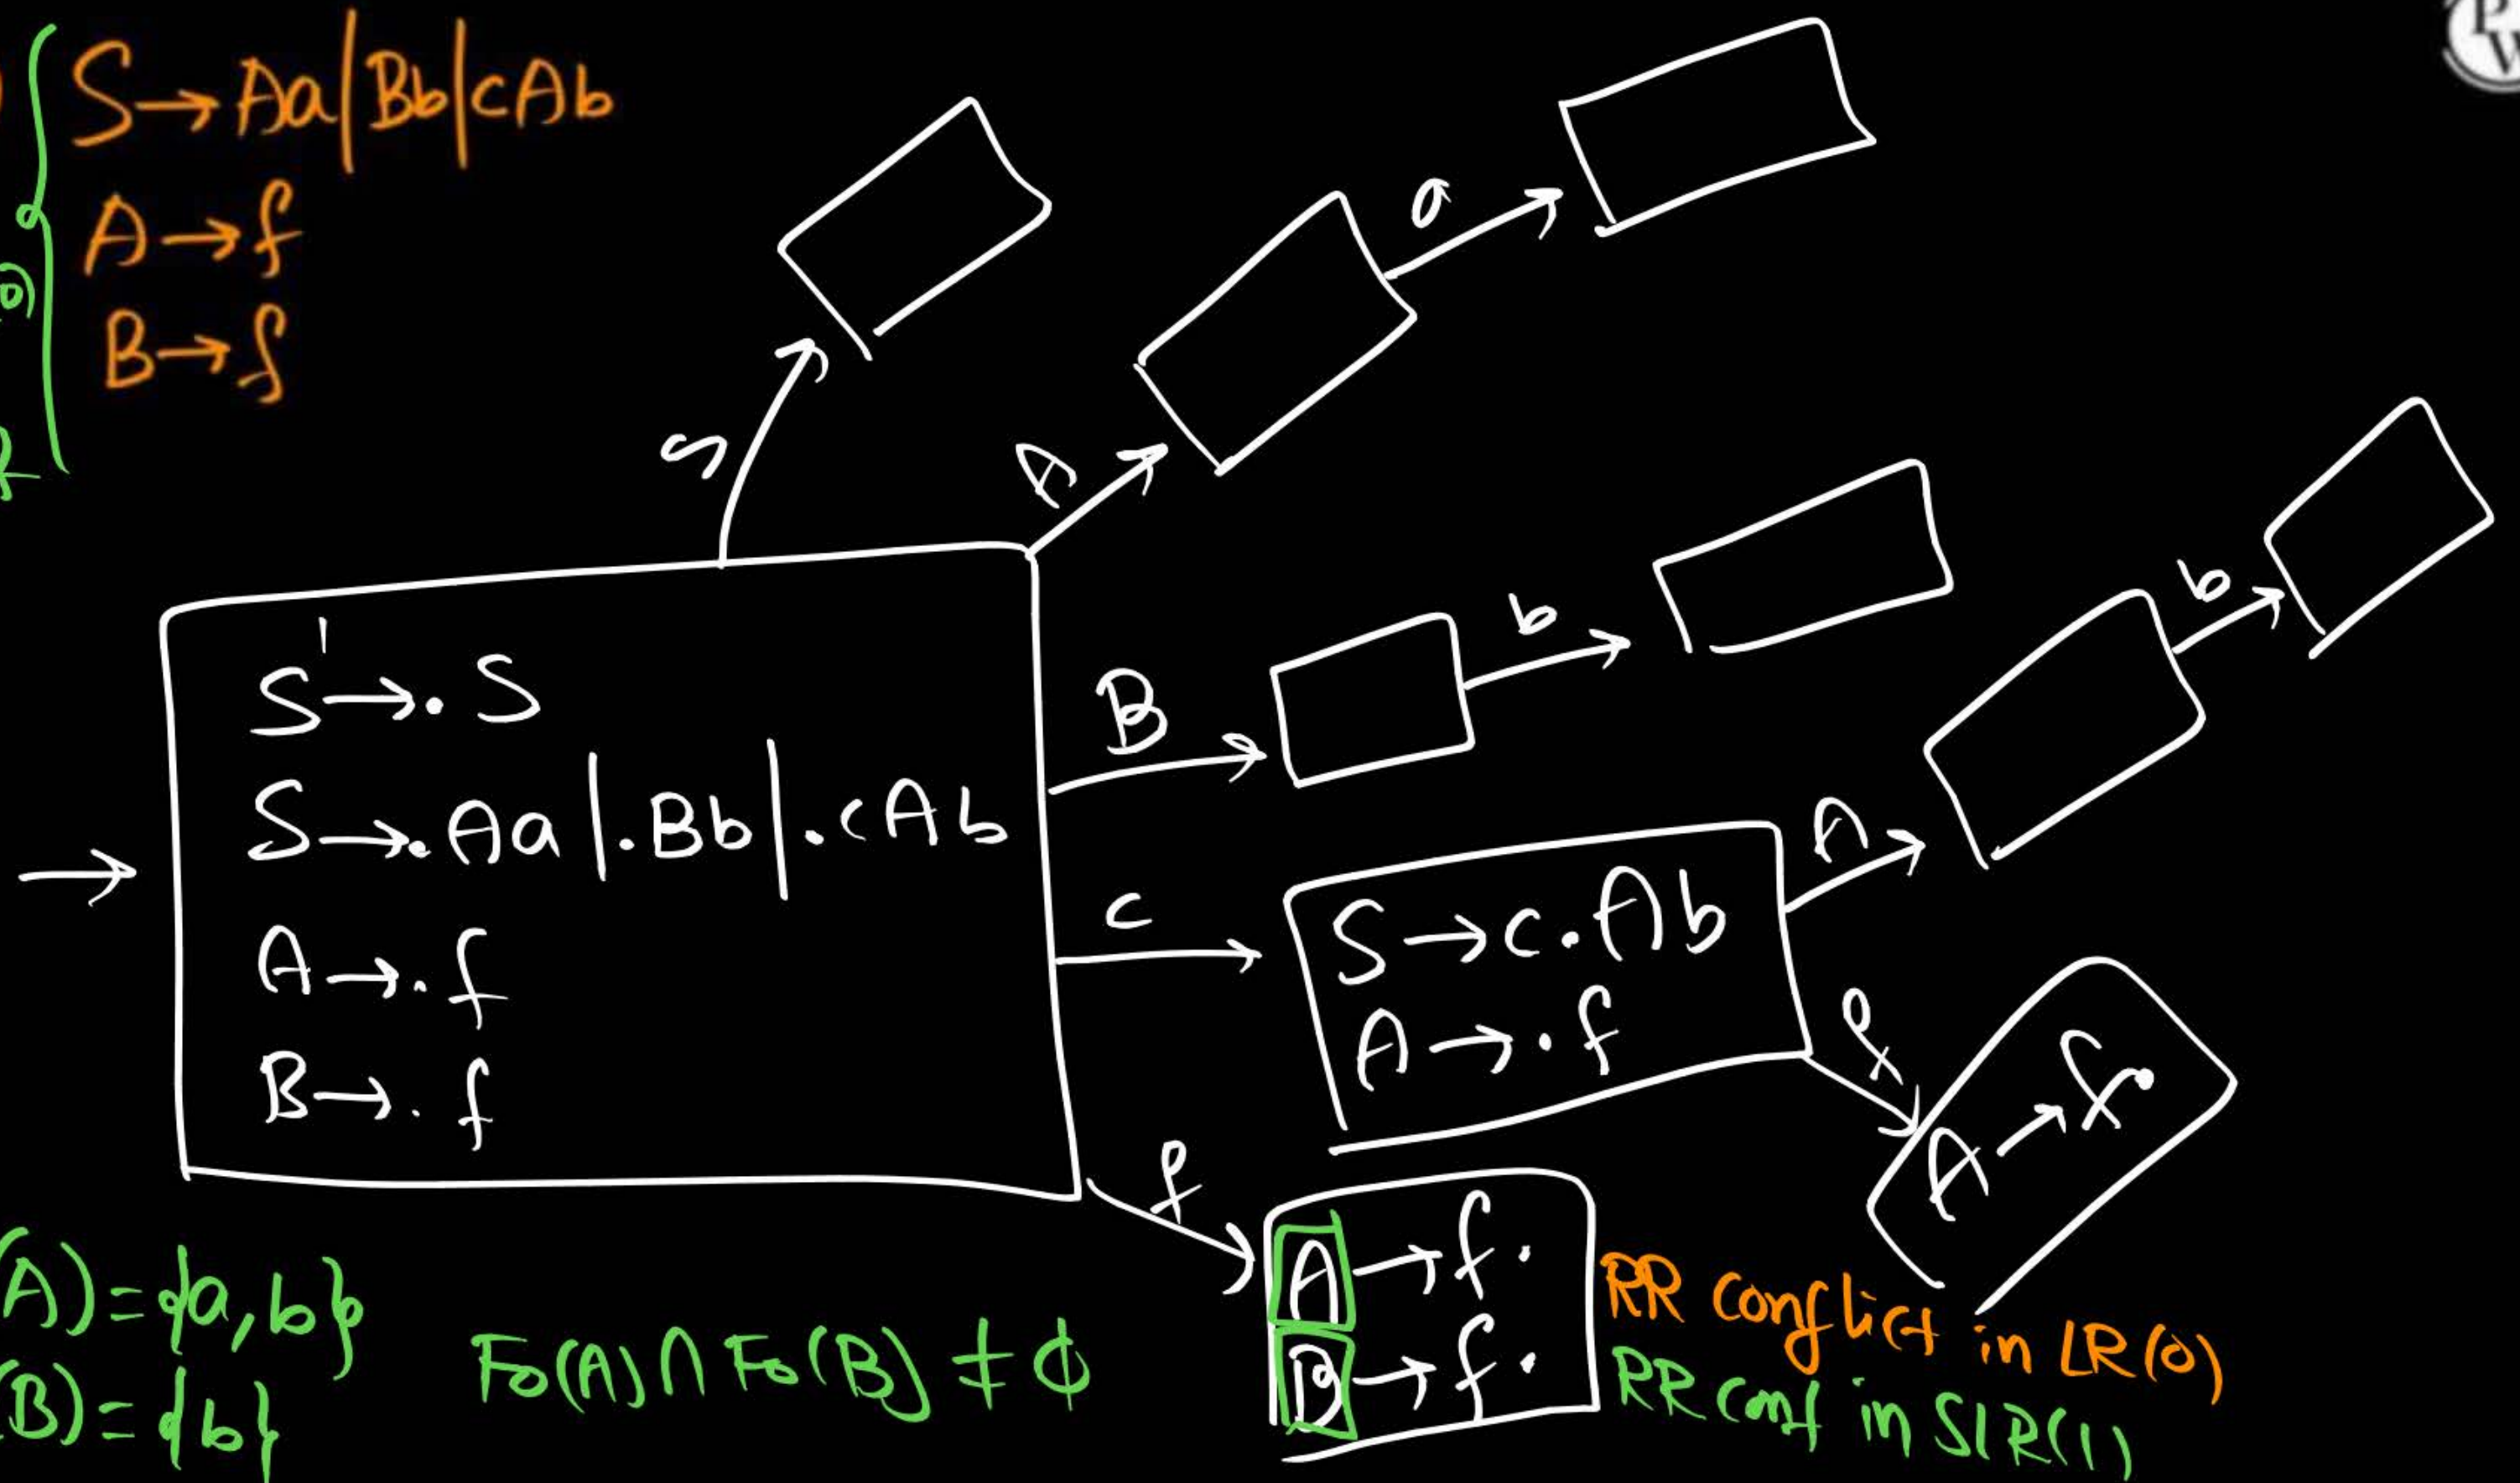 S→Aa|Bb|cAb
A→f
B→f
S
A
a
S'→.S
S→.Aa|.Bb|.cAb
A→.f
B→.f
B
b
c
S→c.Ab
A→.f
A
b
f
A→f.
f
A→f.
B→f.
RR conflict in LR(0)
RR conf in SLR(1)
A)={a,b}
(B)={b}
Fo(A)∩Fo(B)≠ϕ
PW